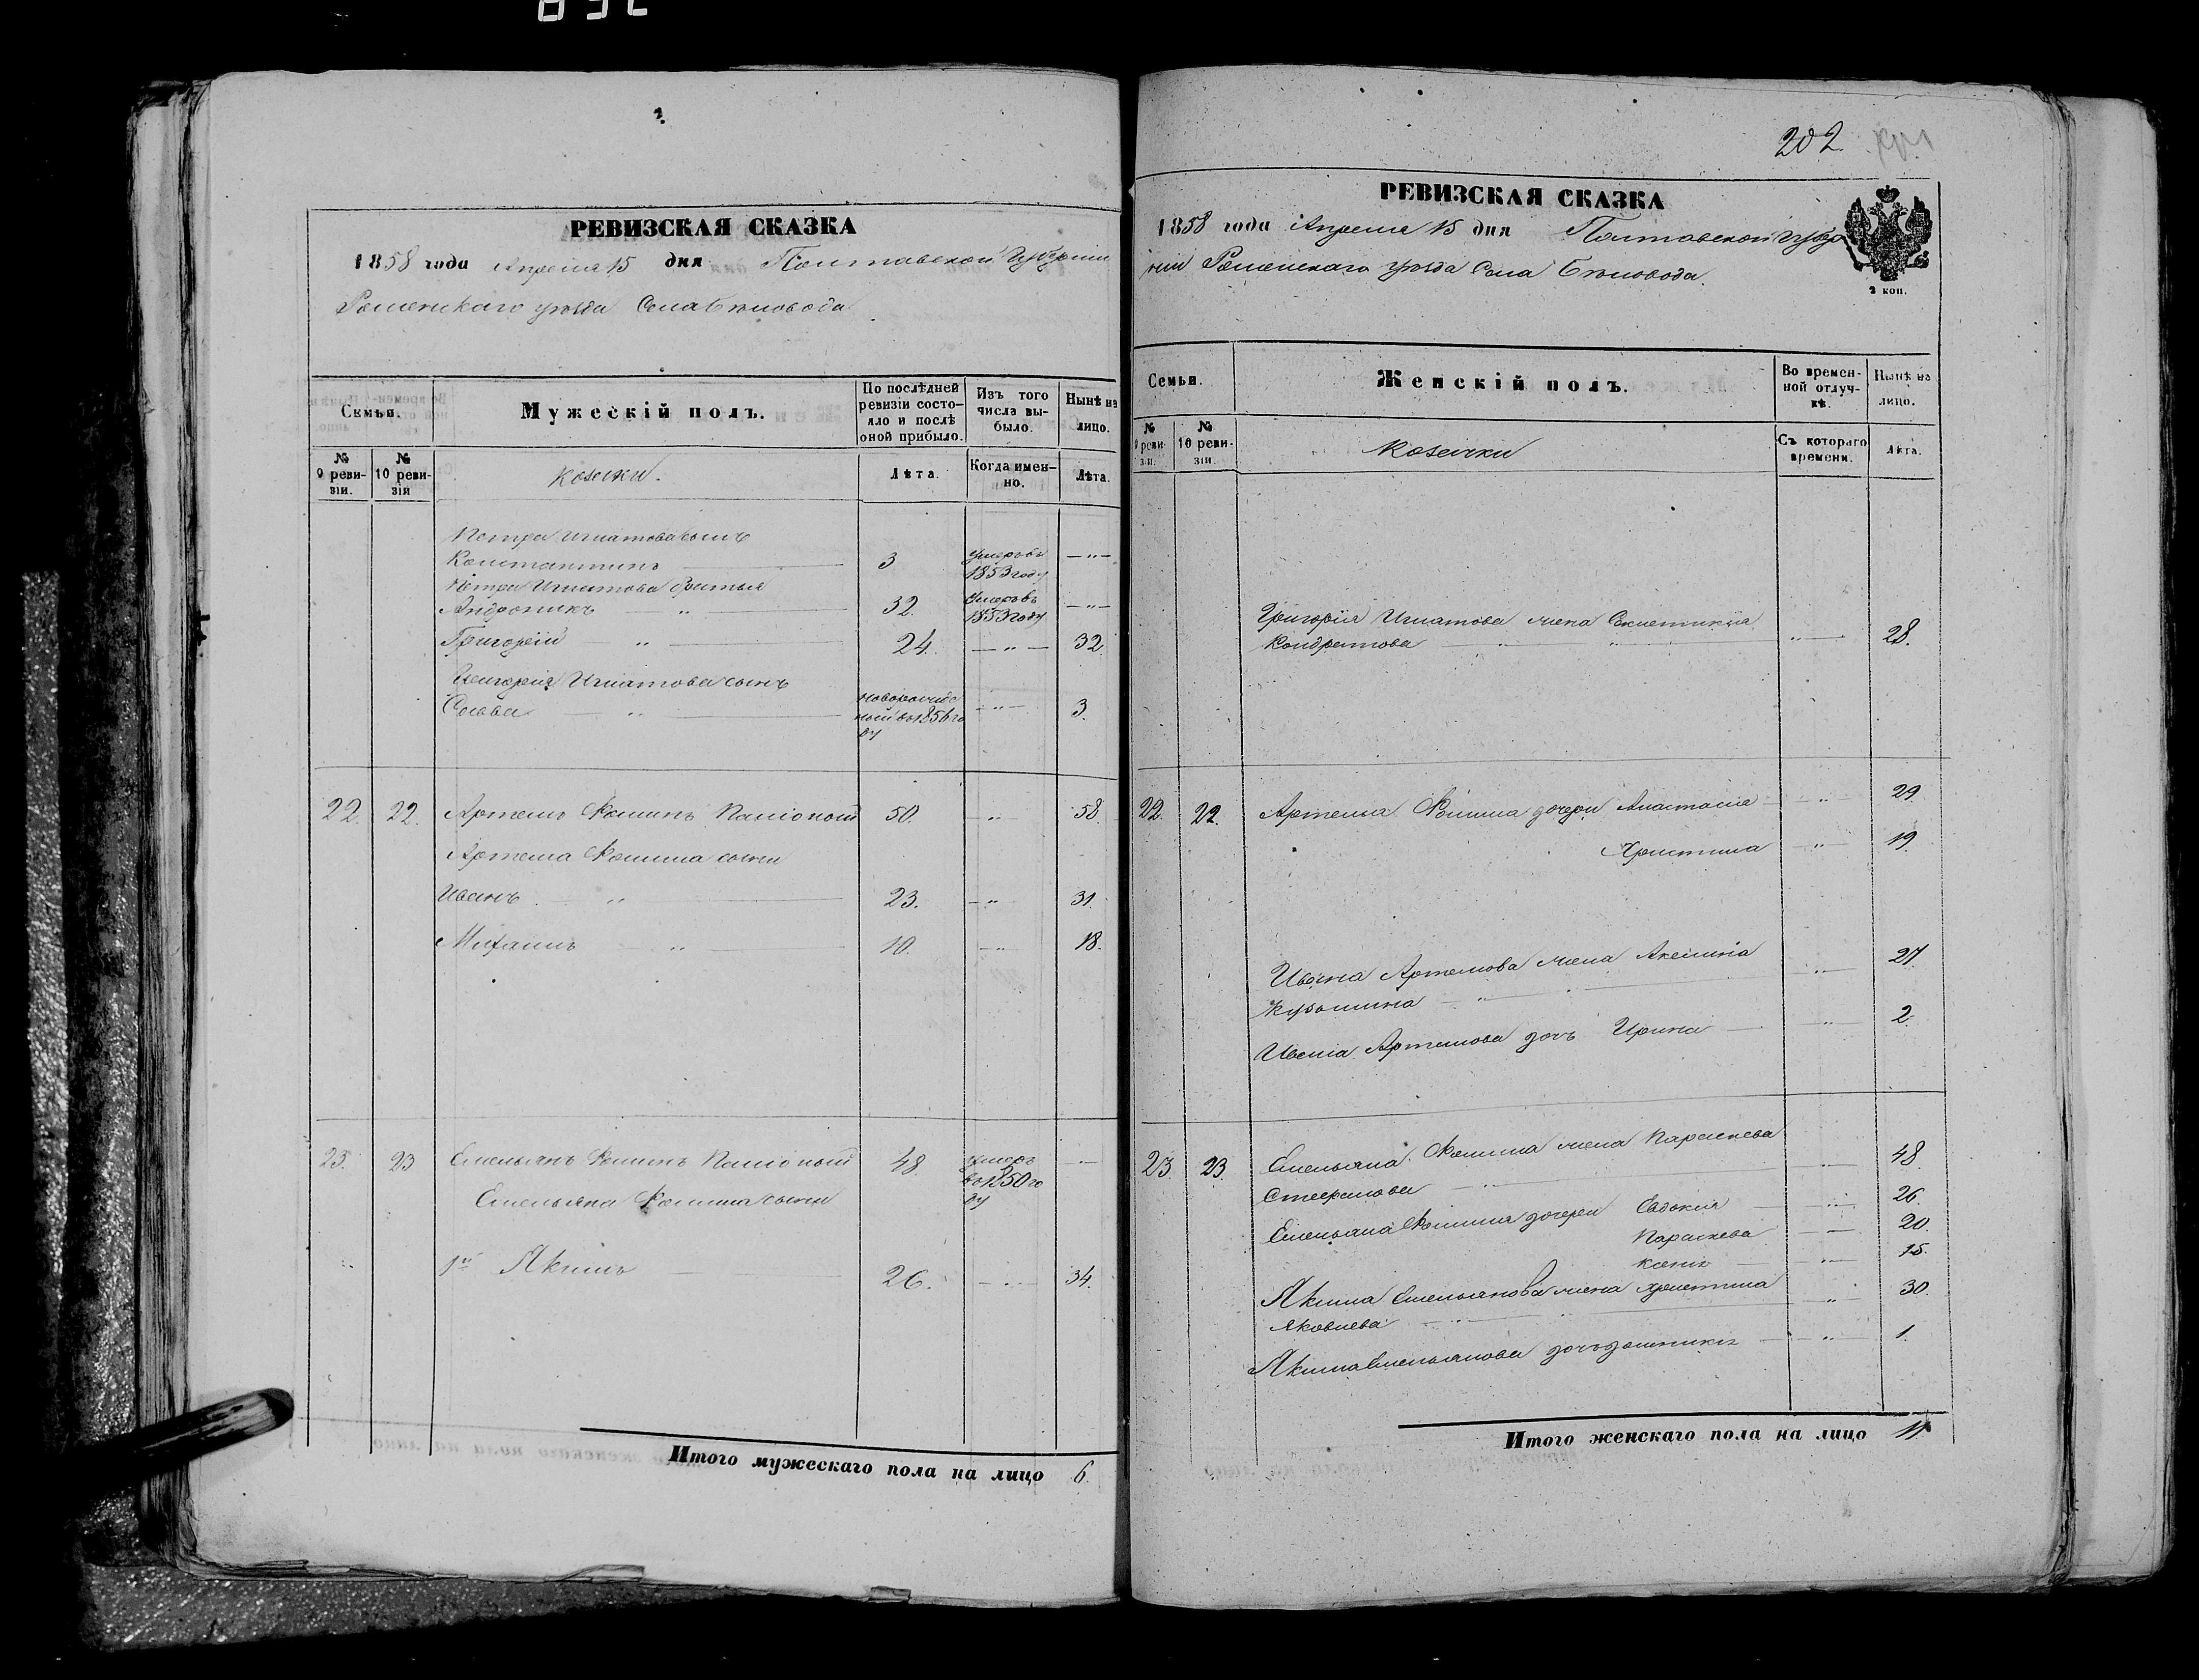 РЕВИЗСКАЯ СКАЗКА
1858 года Апреля 15 дня Полтавской Губернии
Роменскаго уѣзда Села Бѣловода
Семьи.
Мужескій полъ.
По послѣдней ревизіи состояло и послѣ оной прибыло.
Изъ того числа выбыло.
Нынѣ на лицо.
№ 9 ревизіи.
№ 10 ревизіи
Козаки.
Лѣта.
Когда именно.
Лѣта.
Петра Игнатова сынъ
Константинъ 3 умеръ въ 1853 году — " —
Петра Игнатова братья
Андроникъ " 32. Умеръ въ 1853 году — " —
Григорій " 24. — " — 32
Григорія Игнатова сынъ
Савва " новорожденый въ 1856 году — " — 3.
22. 22. Артемъ Фоминъ 50. " 58.
Артема Фомина сыны
Иванъ " 23. " 31.
Михаилъ " 10. " 18.
23. 23 Емельянъ Фоминъ 48. умеръ въ 1850 году
Емельяна Фомина сыны
1й Якимъ 26. 34.
Итого мужескаго пола на лицо 6.
202
РЕВИЗСКАЯ СКАЗКА
1858 года Апреля 15 дня Полтавской Губер
ніи Роменскаго уѣзда Села Бѣловода.
2 коп.
Семьи.
Женскій полъ.
Во временной отлучкѣ.
Нынѣ на лицо.
№ 9 ревизіи.
№ 10 ревизіи.
Козачки
Съ котораго времени.
Лѣта.
Григорія Игнатова жена
Кондратова " " " 28.
22. 22. Артема Фомина дочери Анастасія " 29.
Христина " 19.
Ивана Артемова жена Акилина " 27
Ивана Артемова дочь Ирина " 2.
23. 23. Емельяна Фомина жена Параскева
Стефанова " 48.
Емельяна Фомина дочери Евдокія " 26.
Параскева 20.
15.
Якима Емельянова жена Христина
Яковлева " " 30.
Якима Емельянова дочь " 1.
Итого женскаго пола на лицо 11.